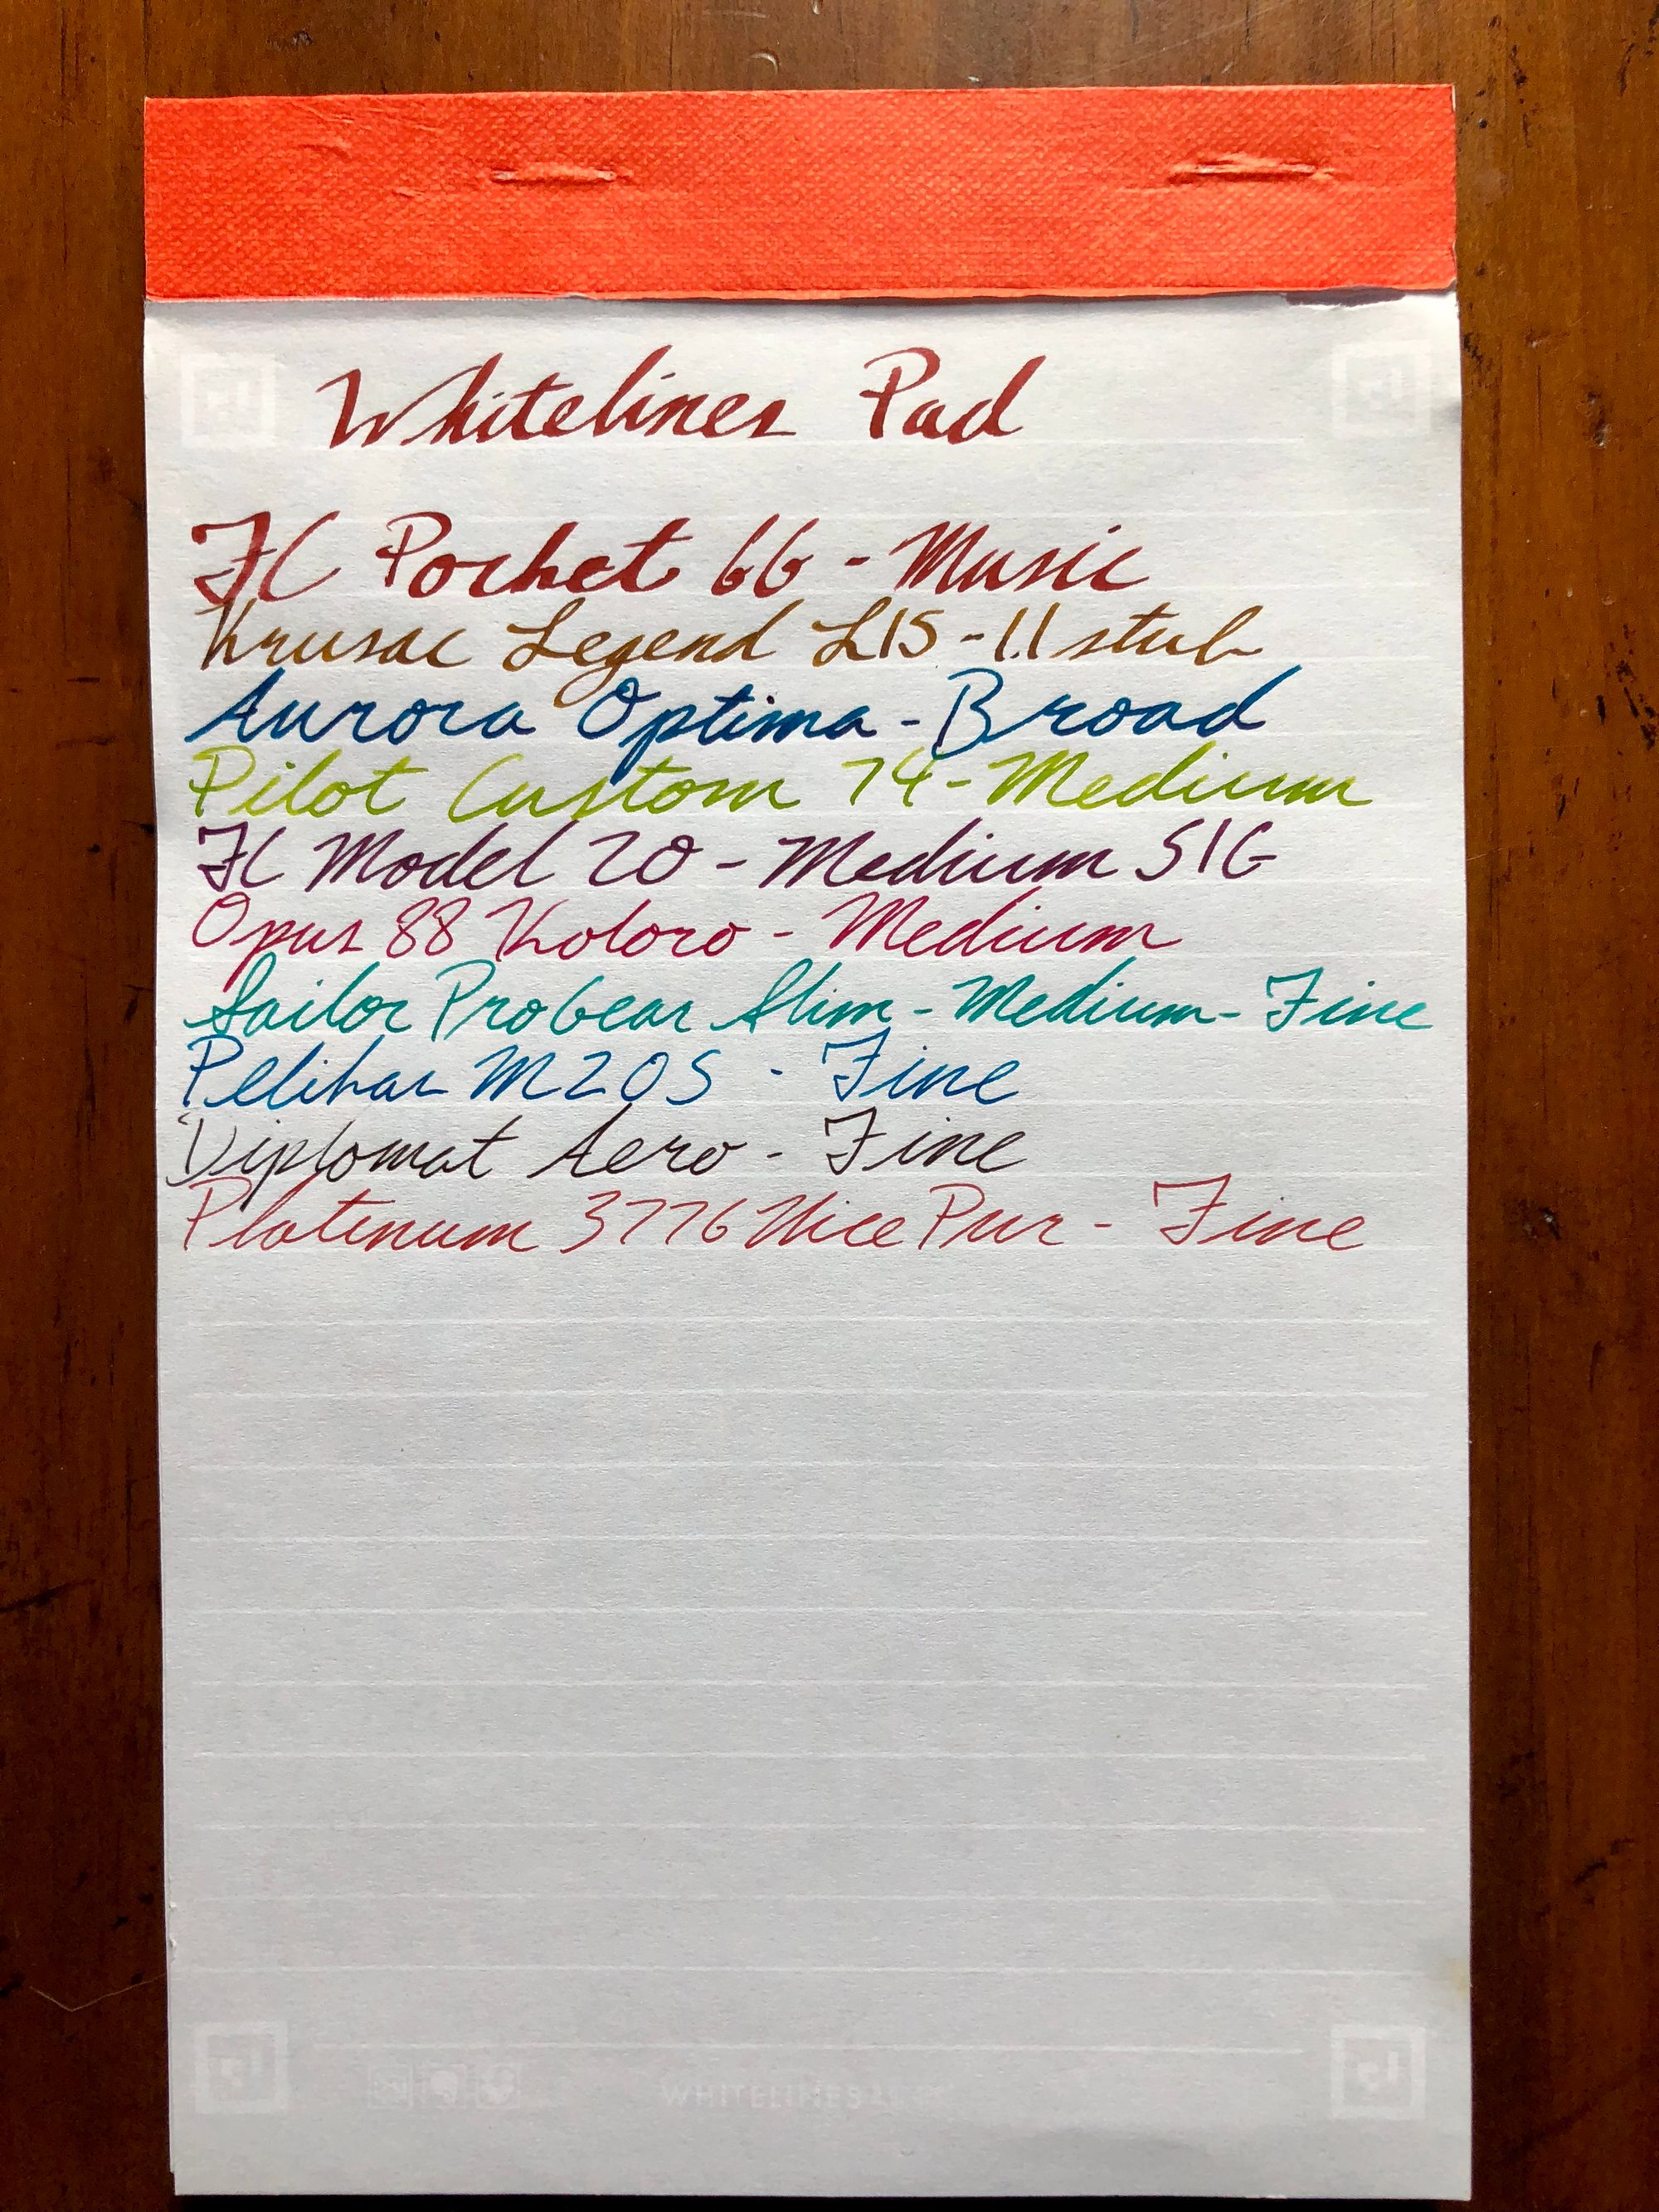 Whitelines Pad
FC Pocket 66 - Music
Krusac Legend L15 - 1.1 stub
Aurora Optima - Broad
Pilot Custom 74 - Medium
FC Model 20 - Medium SIG
Opus 88 Koloro - Medium
Sailor ProGear Slim - Medium-Fine
Pelikan M205 - Fine
Diplomat Aero - Fine
Platinum 3776 Nice Pur - Fine
WHITELINES